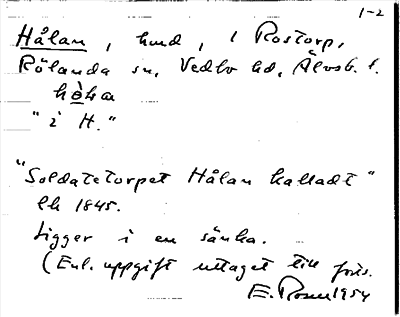 1-2
Hålan, hmd, i Rostorp,
Rölanda sn, Vedbo hd, Älvsb. l.
hò̱la
"i H."
"Soldatetorpet Hålan kalladt"
lk 1845.
Ligger i en sänka.
(Enl. uppgift uttaget till förs.
E. Rosen 1954